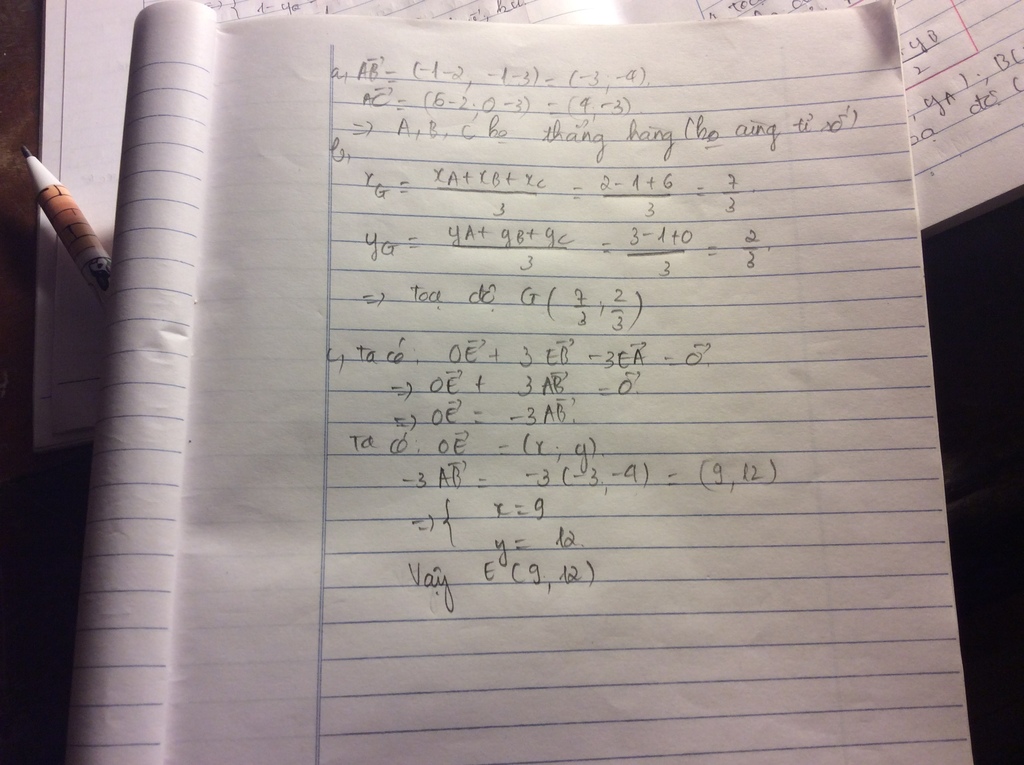 1 - ya
yB
2
, yA), B(
độ (
a, AB⃗ = (-1-2, -1-3) = (-3, -4).
AC⃗ = (6-2, 0-3) = (4, -3)
=> A, B, C ko thẳng hàng (ko cùng tỉ số)
b,
xG = (xA + xB + xC)/3 = (2-1+6)/3 = 7/3.
yG = (yA + yB + yC)/3 = (3-1+0)/3 = 2/3.
=> toạ độ G(7/3, 2/3)
c, ta có: OE⃗ + 3EB⃗ - 3EA⃗ = O⃗.
=> OE⃗ + 3AB⃗ = O⃗.
=> OE⃗ = -3AB⃗.
Ta có: OE⃗ = (x; y).
-3AB⃗ = -3(-3, -4) = (9, 12)
=> { x = 9
y = 12.
Vậy E (9, 12)